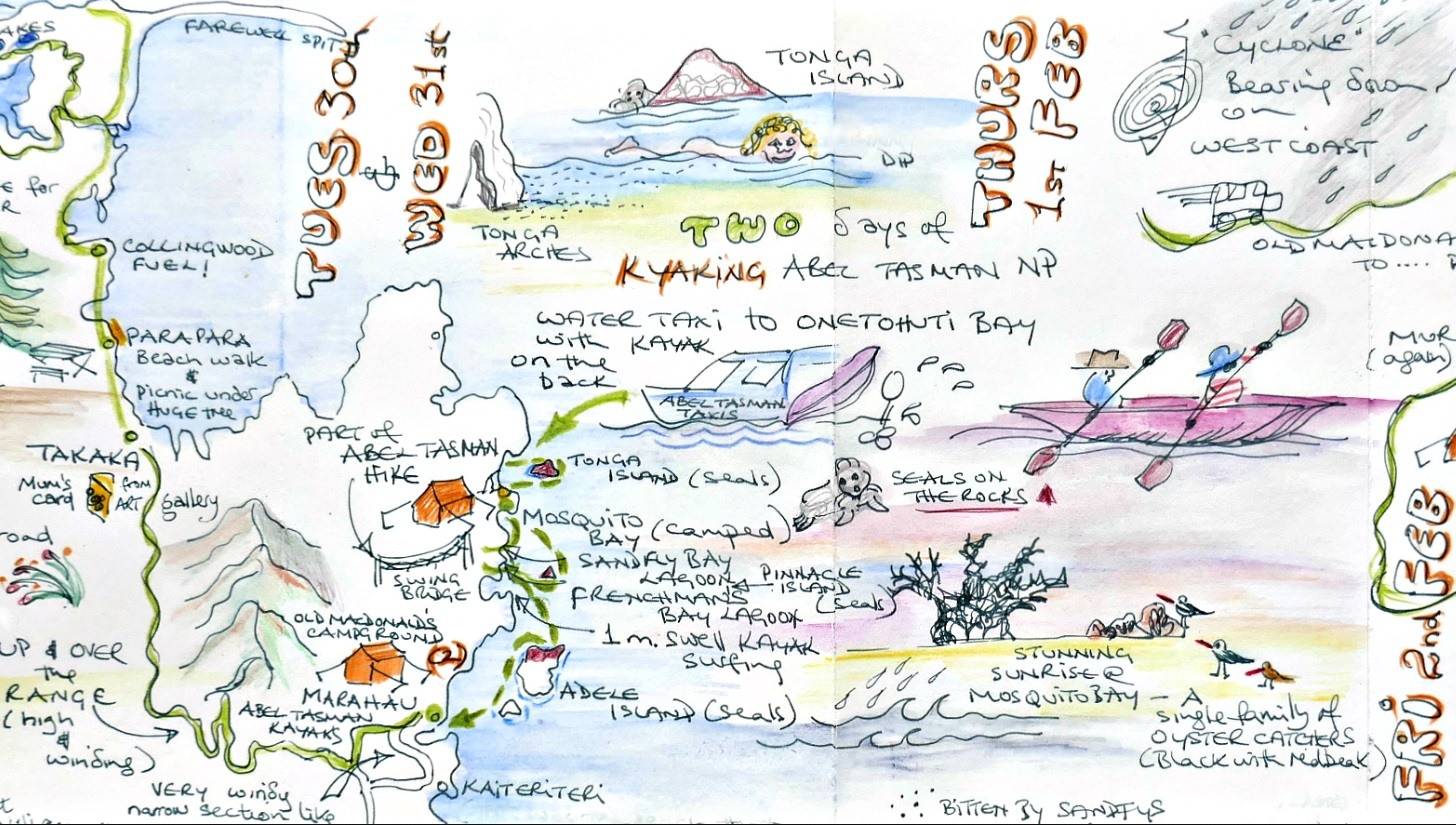 AKES
FAREWELL SPIT
COLLINGWOOD
FUEL!
PARAPARA
Beach walk
&
picnic under
HUGE tree
TAKAKA
Mum's
card
from
ART
gallery
road
UP & OVER
the
RANGE
(high
&
winding)
VERY windy
narrow section like
TUES 30th
&
WED 31st
TONGA
ISLAND
DIP
TONGA
ARCHES
TWO days of
KYAKING ABEL TASMAN NP
WATER TAXI to ONETOHNTI BAY
with KAYAK
on the
back
ABEL TASMAN
TAXIS
PART of
ABEL TASMAN
HIKE
SWING
BRIDGE
OLD MACDONALD'S
CAMPGROUND
MARAHAU
ABEL TASMAN
KAYAKS
KAITERITERI
TONGA
ISLAND (seals)
MOSQUITO
BAY (camped)
SANDFLY BAY
LAGOON
PINNACLE
ISLAND
(seals)
FRENCHMANS
BAY LAGOON
1m. swell KAYAK
surfing
ADELE
ISLAND (seals)
SEALS ON
THE ROCKS
STUNNING
SUNRISE @
MOSQUITO BAY - A
single family of
OYSTER CATCHERS
(Black with red beak)
BITTEN BY SANDFLYS
THURS
1ST FEB
"CYCLONE"
Bearing down
on
WEST COAST
OLD MALDONA
TO ....
MUR
(again)
FRI 2nd FEB